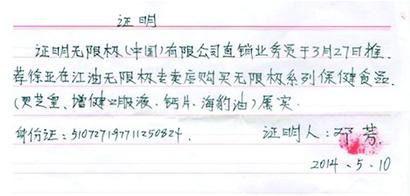 证明
证明无限极(中国)有限公司直销业务员于3月27日推
荐徐亚在江油无限极专卖店购买无限极系列保健食品
(灵芝皇、增健口服液、钙片、海豹油)属实.
身份证:510727197711250824. 证明人:邓芳
2014.5.10